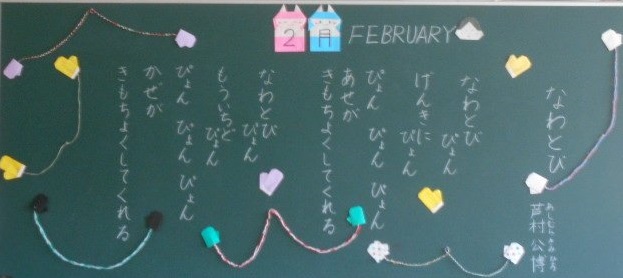 2月 FEBRUARY
なわとび
芦村 公博
あしむら きみ ひろ
なわとび
ぴょん
げんきに
ぴょん
ぴょん ぴょん ぴょん
あせが
きもちよくしてくれる
なわとび
ぴょん
もういちど
ぴょん
ぴょん ぴょん ぴょん
かぜが
きもちよくしてくれる